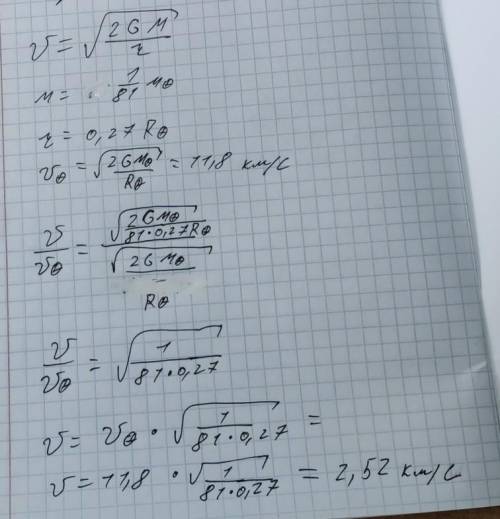 v = √(2GM/r)
M = 1/81 M⊕
r = 0,27 R⊕
v⊕ = √(2GM⊕/R⊕) = 11,8 км/с
v/v⊕ = √(2GM⊕/(81·0,27R⊕)) / √(2GM⊕/R⊕)
v/v⊕ = √(1/(81·0,27))
v = v⊕ · √(1/(81·0,27)) =
v = 11,8 · √(1/(81·0,27)) = 2,52 км/с